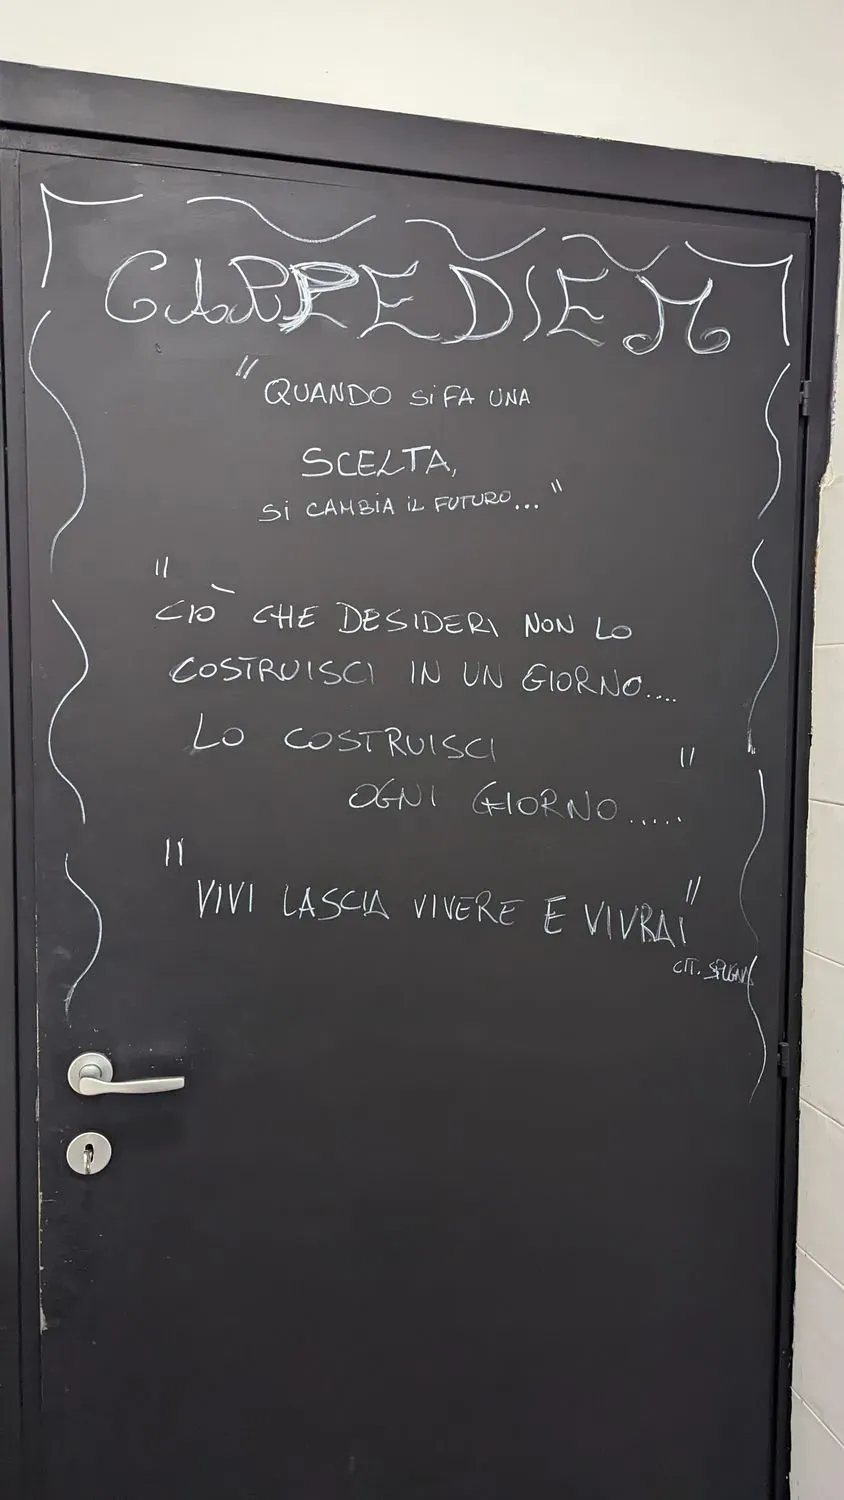 CARPE DIEM
"QUANDO SI FA UNA
SCELTA,
SI CAMBIA IL FUTURO..."
"CIÒ CHE DESIDERI NON LO
COSTRUISCI IN UN GIORNO....
LO COSTRUISCI
OGNI GIORNO....."
"VIVI LASCIA VIVERE E VIVRAI"
CIT.